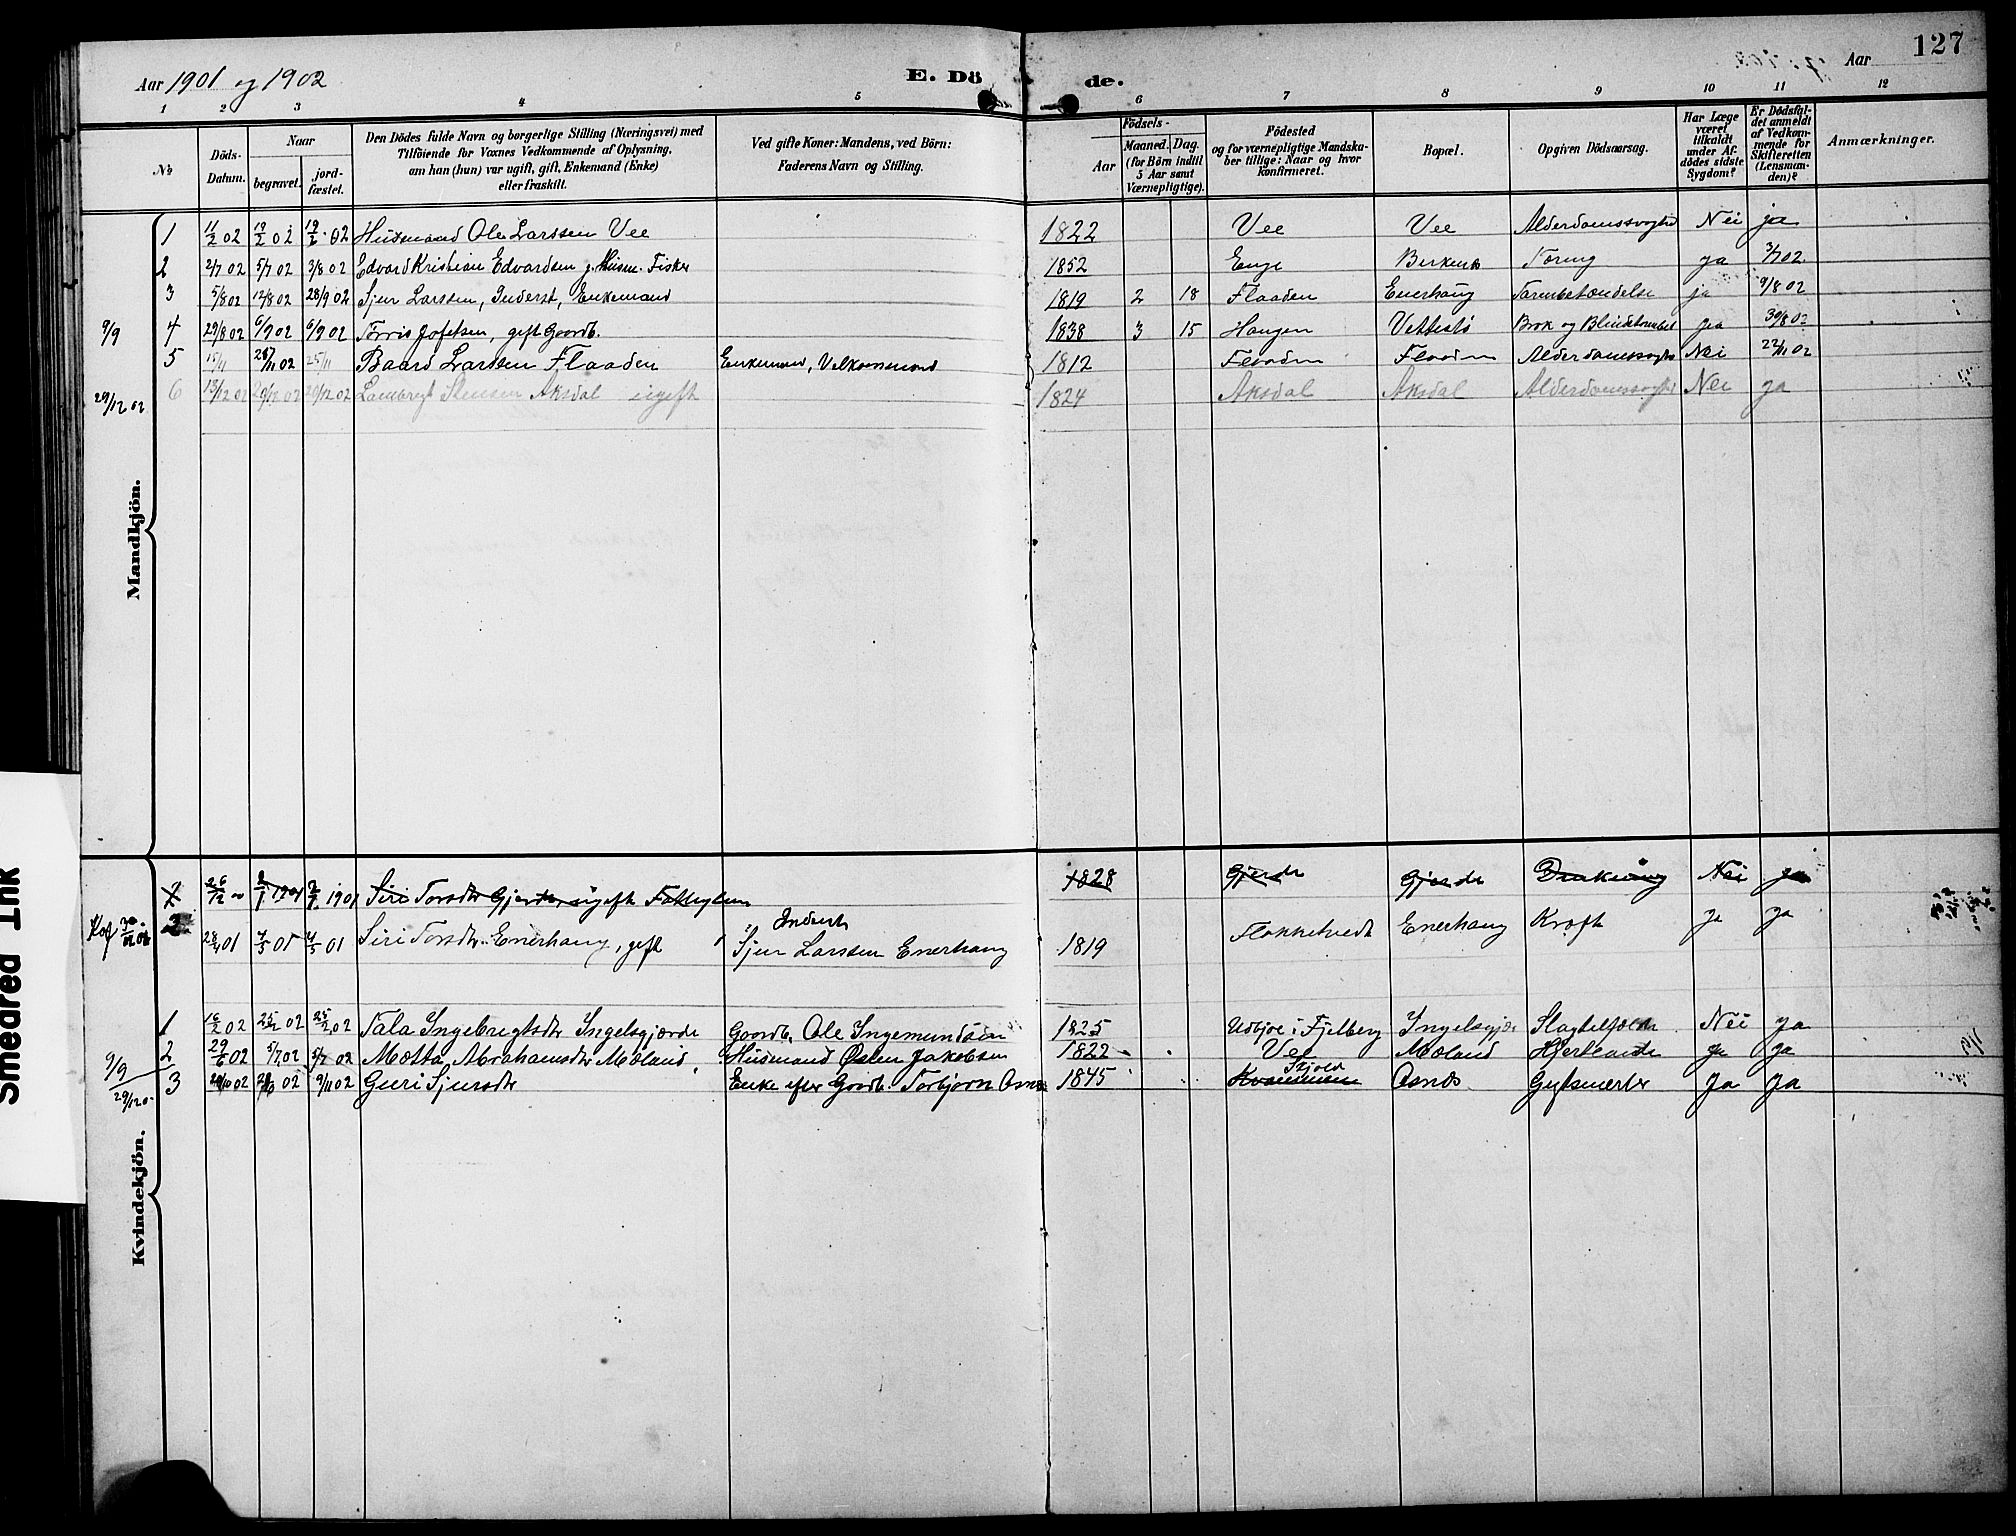 127
Aar 1901 og 1902
E. Dö de.
Aar
1 2 3 4 5 6 7 8 9 10 11 12
№
Döds-Datum.
Naar
begravet.
jord-fæstet.
Den Dödes fulde Navn og borgerlige Stilling (Næringsvei) med Tilföiende for Voxnes Vedkommende af Oplysning, om han (hun) var ugift, gift, Enkemand (Enke) eller fraskilt.
Ved gifte Koner: Mandens, ved Börn: Faderens Navn og Stilling.
Födsels-
Aar
Maaned. Dag.
(for Börn indtil 5 Aar samt Værnepligtige).
Födested og for værnepligtige Mandskaber tillige: Naar og hvor konfirmeret.
Bopæl.
Opgiven Dödsaarsag.
Har Læge været tilkaldt under Afdödes sidste Sygdom?
Er Dödsfaldet anmeldt af Vedkommende for Skifteretten (Lensmanden)?
Anmærkninger.
Mandkjön.
1 11/2 02 19/2 02 19/2 02 Husmand Ole Larssen Vee 1822 Vee Vee Alderdomssvaghed Nei ja
2 2/7 02 5/7 02 3/8 02 Edvard Kristian Edvardsen g. Husm. Fisker 1852 Enge Tæring ja 3/7 02
3 5/8 02 12/8 02 28/9 02 Sjur Larssen, Inderst, Enkemand 1819 2 18 Flaaden Enerhaug Tarmbetændelse ja 9/8 02
9/9 4 29/8 02 6/9 02 6/9 02 Torris Jofetsen, gift Goardb. 1838 3 15 Haugen Vettestø Brok og ja 30/8 02
5 15/11 25/11 02 25/11 Baard Larssen Flaaden Enkemand, 1812 Flaaden Flaaden Alderdomssvaghed Nei 22/11 02
29/12 02 6 13/12 02 29/12 02 29/12 02 Lambregt Stensen Aksdal ugift 1824 Aksdal Aksdal Alderdomssvaghed Nei ja
Kvindekjön.
26/12 2/1 1901 2/1 1901 Siri Torsdtr Gjerde, ugift 1828 Gjerde Gjerde Nei ja
2 28/4 01 4/5 01 4/5 01 Siri Torsdtr. Enerhaug, gift Inderst Sjur Larssen Enerhaug 1819 Flokketvedt Enerhaug Kræft Ja Ja
1 16/2 02 25/2 02 25/2 02 Tala Ingebregtsdtr Ingelsgjærde Goardb. Ole Ingemundsen 1825 Udbjoe i Fjelberg Ingelsgj. Slagtilfælde Nei ja
9/9 2 29/6 02 5/7 02 5/7 02 Mætta Abrahamsdtr Moland, Husmand Østen Jakobsen 1822 Vee Moland Ja Ja
29/12 0 3 02 02 9/11 02 Guri Sjursdtr Enke efter Goardb. Torbjørn 1845 Skjold Ja Ja
Smedred Ink